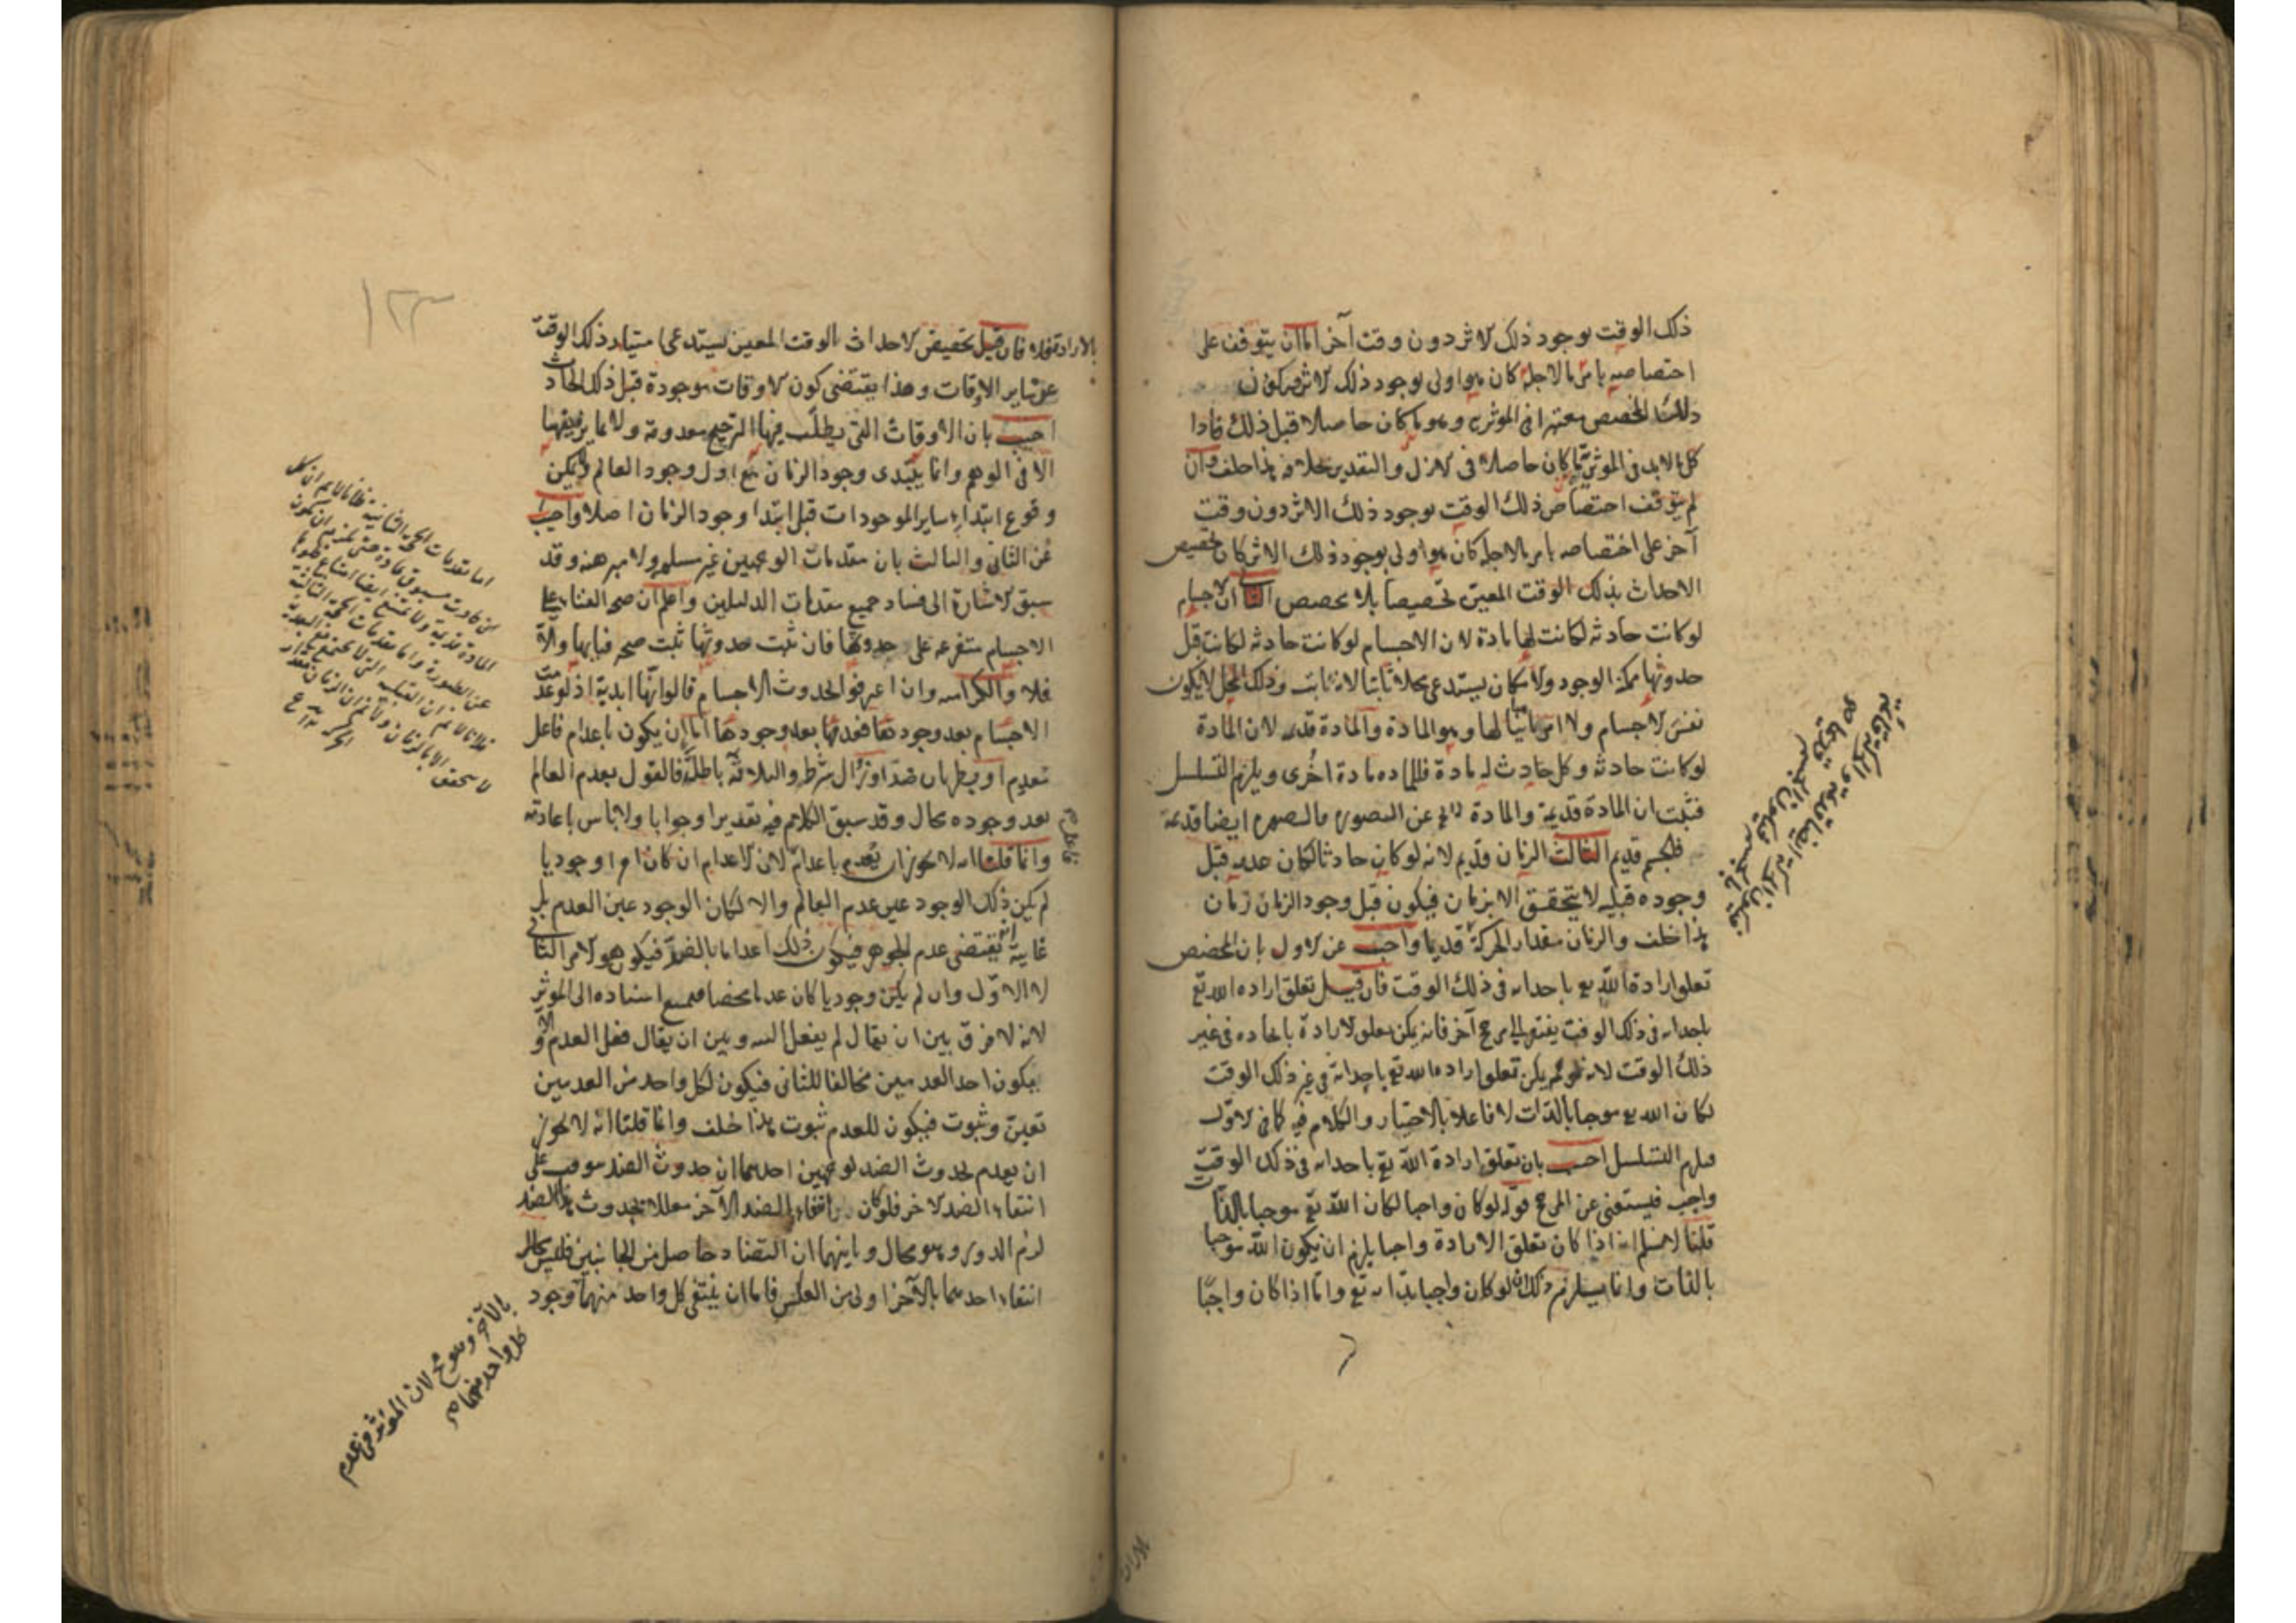 ذلك الوقت بوجود ذلك الاثر دون وقت آخر اما ان يتوقف على
اختصاصه بامر ما لاجله كان هو اولى بوجود ذلك الاثر فيكون
ذلك المخصص معتبرا فى المؤثرية وهو ما كان حاصلا قبل ذلك فاذا
كل ما لابد فى المؤثرية ما كان حاصلا فى الازل والتقدير خلافه هذا خلف وان
لم يتوقف اختصاص ذلك الوقت بوجود ذلك الاثر دون وقت
آخر على اختصاصه بامر ما لاجله كان هو اولى بوجود ذلك الاثر كان تخصيص
الاحداث بذلك الوقت المعين تخصيصا بلا مخصص الثانى ان الاجسام
لو كانت حادثه لكانت لها مادة لان الاجسام لو كانت حادثه لكانت قبل
حدوثها ممكنة الوجود والامكان يستدعى محلا ثابتا لانه ثابت وذلك المحل لا يكون
نفس الاجسام ولا امرا مباينا لها وهو المادة والمادة قديمه لان المادة
لو كانت حادثه وكل حادث له مادة فللماده مادة اخرى ويلزم التسلسل
فثبت ان المادة قديمة والمادة لا تخ عن الصوره فالصوره ايضا قديمة
فالجسم قديم الثالث الزمان قديم لانه لو كان حادثا لكان عدمه قبل
وجوده قبليه لا يتحقق الا بزمان فيكون قبل وجود الزمان زمان
هذا خلف والزمان مقدار الحركة قديما واجيب عن الاول بان المخصص
تعلق ارادة الله تع باحداثه فى ذلك الوقت فان قيل تعلق اراده الله تع
باحداثه فى ذلك الوقت يفتقر الى مرجح آخر فانه يمكن تعلق الارادة بايجاده فى غير
ذلك الوقت لانه لو لم يكن تعلق اراده الله تع باحداثه فى غير ذلك الوقت
لكان الله تع موجبا بالذات لا فاعلا بالاختيار والكلام فيه كما فى الاول
ويلزم التسلسل اجيب بان تعلق ارادة الله تع باحداثه فى ذلك الوقت
واجب فيستغنى عن المرجح قوله لو كان واجبا لكان الله تع موجبا بالذات
قلنا لا نسلم انه اذا كان تعلق الارادة واجبا يلزم ان يكون الله موجبا
بالذات وانما يلزم ذلك ان لو كان واجبا بذاته تع واما اذا كان واجبا
بالارادة فلا فان قيل تخصيص الاحداث بالوقت المعين يستدعى امتياز ذلك الوقت
عن ساير الاوقات وهذا يقتضى كون الاوقات موجودة قبل ذلك الحادث
اجيب بان الاوقات التى يطلب فيها الترجيح معدومة ولا تمايز فيها
الا فى الوهم وانما يبتدى وجود الزمان مع اول وجود العالم ولم يمكن
وقوع ابتداء ساير الموجودات قبل ابتدا وجود الزمان اصلا واجيب
عن الثانى والثالث بان مقدمات الوجهين غير مسلمه ولا مبرهنه وقد
سبق الاشارة الى فساد جميع مقدمات الدليلين واعلم ان صحة الفناء على
الاجسام متفرعه على حدوثها فان ثبت حدوثها ثبت صحه فنائها والا
فلا والكراميه وان اعترفوا بحدوث الاجسام قالوا انها ابدية اذ لو عدمت
الاجسام بعد وجودها فعدمها بعد وجودها اما ان يكون باعدام فاعل
تعديم او بطريان ضد او زوال شرط والثلاثه باطلة فالقول بعدم العالم
بعد وجوده محال وقد سبق الكلام فيه تقديرا وجوابا ولا باس باعادته
وانما قلنا انه لا يجوز ان يعدم باعدام لان الاعدام ان كان امرا وجوديا
لم يكن ذلك الوجود عين عدم العالم والا لكان الوجود عين العدم بل
غايته انه يقتضى عدم الجوهر فيكون ذلك اعداما بالضد فيكون هو الامر الثانى
لا الاول وان لم يكن وجوديا كان عدما محضا فيمتنع استناده الى المؤثر
لانه لا فرق بين ان يقال لم يفعل البته وبين ان يقال فعل العدم والا
يكون احد العدمين مخالفا للثانى فيكون لكل واحد من العدمين
تعين وثبوت فيكون للعدم ثبوت هذا خلف وانما قلنا انه لا يجوز
ان يعدم لحدوث الضد لوجهين احدهما ان حدوث الضد موقوف على
انتفاء الضد الاخر فلو كان انتفاء الضد الآخر معللا بحدوث هذا الضد
لزم الدور وهو محال وثانيهما ان التضاد حاصل من الجانبين فليس
انتفاء احدهما بالآخر اولى من العكس فاما ان ينتفى كل واحد منهما بوجود
بالآخر وهو مح لان المؤثر فى عدم
كل واحد منهما
١٢٣